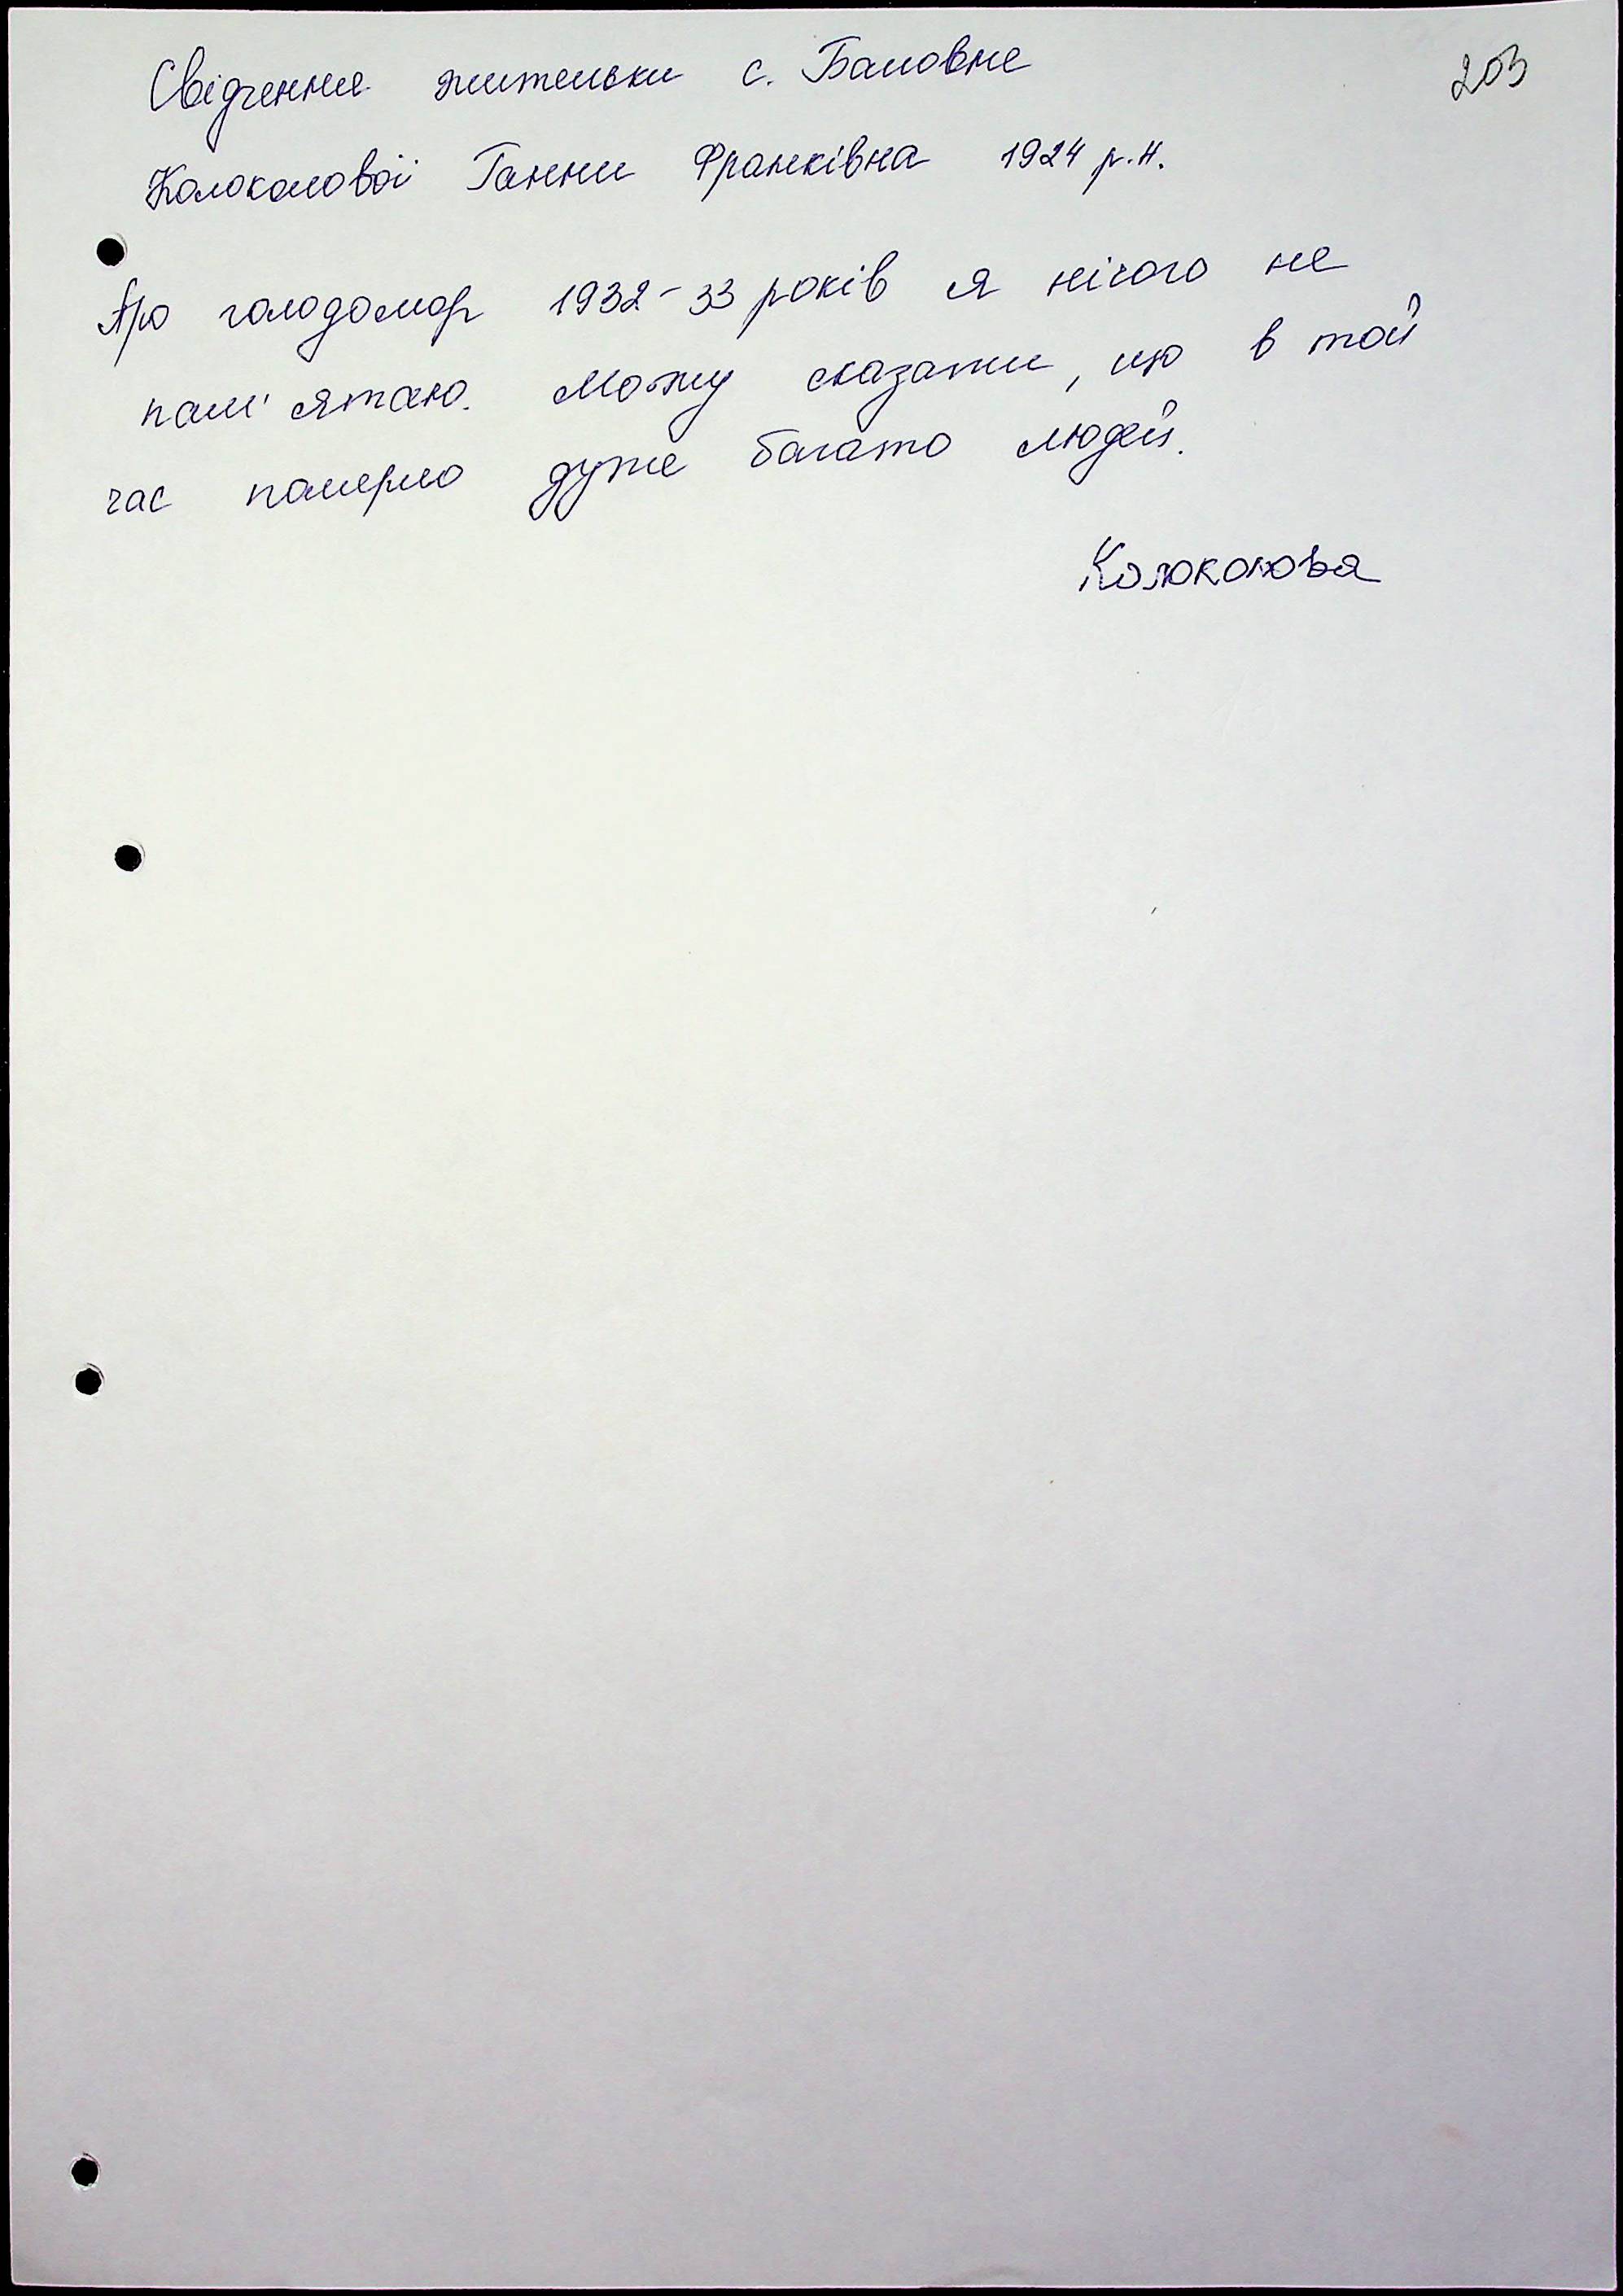 203
Свідчення жительки с. Бановне
Колоколової Ганни Франківна 1924 р.н.
Про голодомор 1932-33 років я нічого не
пам'ятаю. Можу сказати, що в той
час померло дуже багато людей.
Колоколова